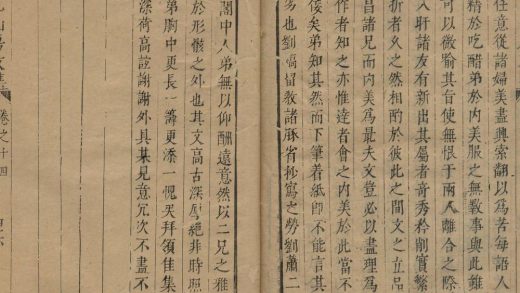 任意從諸婦美盡興索翻以爲苦每語人
精於吃醋弟於内美服之無斁事與此雖
可以微喻其旨使無恨于兩人離合之際
入肝諸友有新出其屬者奇秀矜削實繁
折者久之然相酌於彼此之間文之立品
昌諸兄而内美爲最夫文豈必以盡理爲
作者知之亦惟達者會之内美於此當不
俟矣弟知其然而下筆着紙即不能言其
易也劉 留教諸 省抄寫之勞劉蕭二
閣中人弟無以仰酬遠意然以二兄之雅
於形骸之外也其文高古深厚絕非時照
弟胸中更長一 更添一愧矣拜領佳集
深荷高誼謝謝外具某見意冗次不盡不
卷之十四